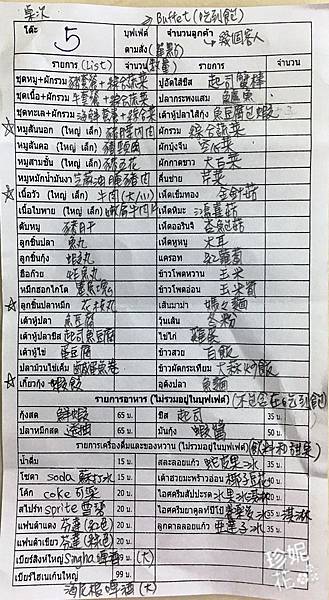 桌次 → Buffet (吃到飽)
โต๊ะ 5 บุฟเฟ่ต์ จำนวนลูกค้า → 幾個客人
ตามสั่ง (單點)
รายการ (List) จำนวน (數量) รายการ จำนวน
ชุดหมู+ผักรวม 豬套餐+綜合蔬菜 ปูอัดไส้ชีส 起司蟹棒
ชุดเนื้อ+ผักรวม 牛套餐+綜合蔬菜 ปลากระพงแสม 鱸魚
ชุดทะเล+ผักรวม 海鮮套餐+綜合蔬菜 เต้าหู้ปลาไส้กุ้ง 魚豆腐包蝦
หมูสันนอก (ใหญ่ เล็ก) 豬腰內肉 ผักรวม 綜合蔬菜
หมูสันคอ (ใหญ่ เล็ก) 豬頸肉 ผักบุ้งจีน 空心菜
หมูสามชั้น (ใหญ่ เล็ก) 豬五花 ผักกาดขาว 大白菜
หมูหมักน้ำมันงา 芝麻油醃豬肉 คื่นช่าย 芹菜
เนื้อวัว (ใหญ่ เล็ก) 牛肉 (大/小) เห็ดเข็มทอง 金針菇
เนื้อใบพาย (ใหญ่ เล็ก) 嫩肩牛肉片 เห็ดหิมะ 鴻喜菇
ตับหมู 豬肝 เห็ดออรินจิ 杏鮑菇
ลูกชิ้นปลา 魚丸 เห็ดหูหนู 木耳
ลูกชิ้นกุ้ง 蝦丸 แครอท 紅蘿蔔
ฮือก้วย 魚丸 ข้าวโพดหวาน 玉米
หมึกฮอกไกโด ข้าวโพดอ่อน 玉米筍
ลูกชิ้นปลาหมึก 花枝丸 เส้นมาม่า 媽媽麵
เต้าหู้ปลา 魚豆腐 วุ้นเส้น 冬粉
เต้าหู้ปลาชีส 起司魚豆腐 ไข่ไก่ 雞蛋
เต้าหู้ไข่ 蛋豆腐 ข้าวสวย 白飯
ปลาม้วนไข่เค็ม 鹹蛋魚卷 ข้าวผัดกระเทียม 大蒜炒飯
เกี๊ยวกุ้ง 蝦餃 อุด้งปลา 魚麵
รายการอาหาร (ไม่รวมอยู่ในบุฟเฟ่ต์) (不包含在吃到飽)
กุ้งสด 鮮蝦 65 บ. ชีส 起司 35 บ.
ปลาหมึกสด 透抽 65 บ. มันกุ้ง 蝦醬 50 บ.
รายการเครื่องดื่มและของหวาน (ไม่รวมอยู่ในบุฟเฟ่ต์) (飲料和甜菜)
น้ำดื่ม 15 บ. สตอเบอรี่สละลอยแก้ว
โซดา soda 蘇打水 15 บ. เต้าฮวยมะพร้าวอ่อน 椰子豆花
โค้ก coke 可樂 20 บ. ไอศครีมสับปะรด 水果冰淇淋
สไปรท์ sprite 雪碧 20 บ.
แฟนต้าแดง 芬達 (紅色) 20 บ.
แฟนต้าเขียว 芬達 (綠色) 20 บ.
เบียร์สิงห์ใหญ่ Singha 啤酒 99 บ. (大)
เบียร์ไฮเนเก้นใหญ่ 99 บ.
海尼根啤酒 (大)
珍妮花